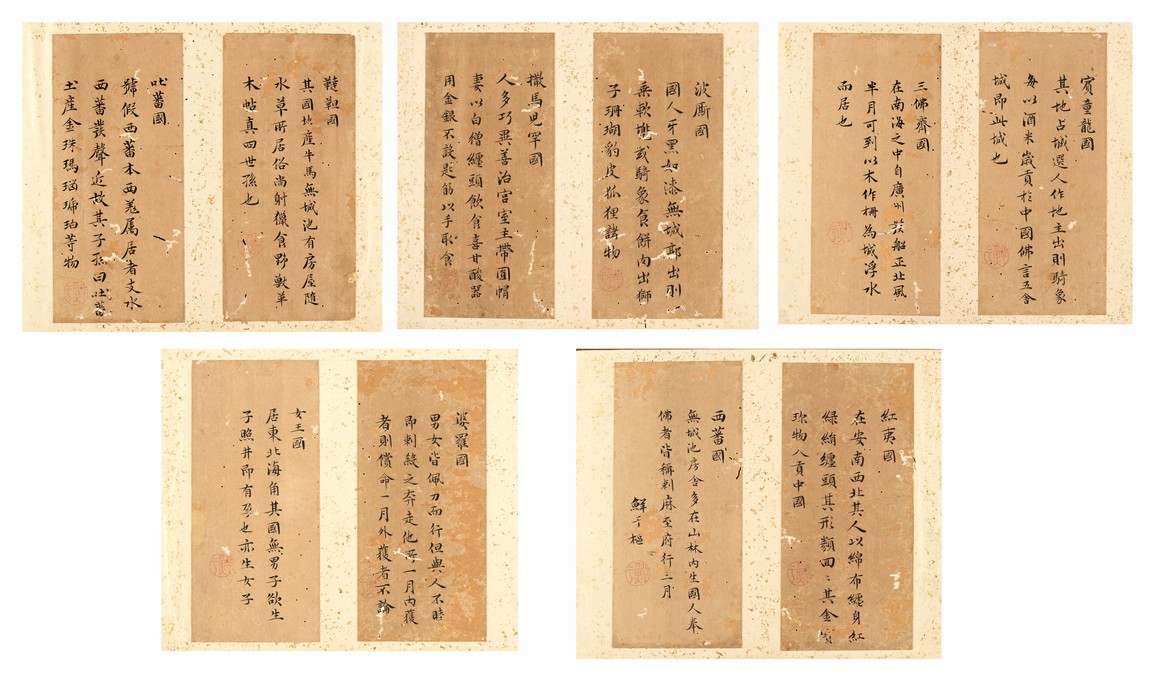 韃靼國
其國北產牛馬無城池有房屋隨
水草所居俗尚射獵食野獸羊
木帖真四世孫也
吐蕃國
號假西蕃本西羌属居者支水
西蕃叢聲近故其子孫曰吐蕃
土產金珠瑪瑙琥珀等物
波厮國
國人牙黑如漆無城郭出則
乗軟㙮或騎象食餅肉出獅
子珊瑚豹皮狐狸諸物
撒馬兒罕國
人多巧藝善治宫室王帶圓帽
妻以白繒纏頭飲食喜甘酸器
用金銀不設匙筯以手取食
賓童龍國
其地占城選人作地主出則騎象
每以酒米歲貢於中國佛言五舍
城即此城也
三佛齊國
在南海之中自廣州發船正北風
半月可到以木作柵為城浮水
而居也
婆羅國
男女皆佩刀而行但與人不睦
即刺殺之奔走他所一月内獲
者則償命一月外獲者不論
女王國
居東北海角其國無男子欲生
子照井即有孕也亦生女子
紅夷國
在安南西北其人以綿布纏身紅
綠絹纏頭其形類回〻其金
珎物入貢中國
西蕃國
無城池房舍多在山林内生國人奉
佛者皆稱剌麻至府行二月
鮮于樞